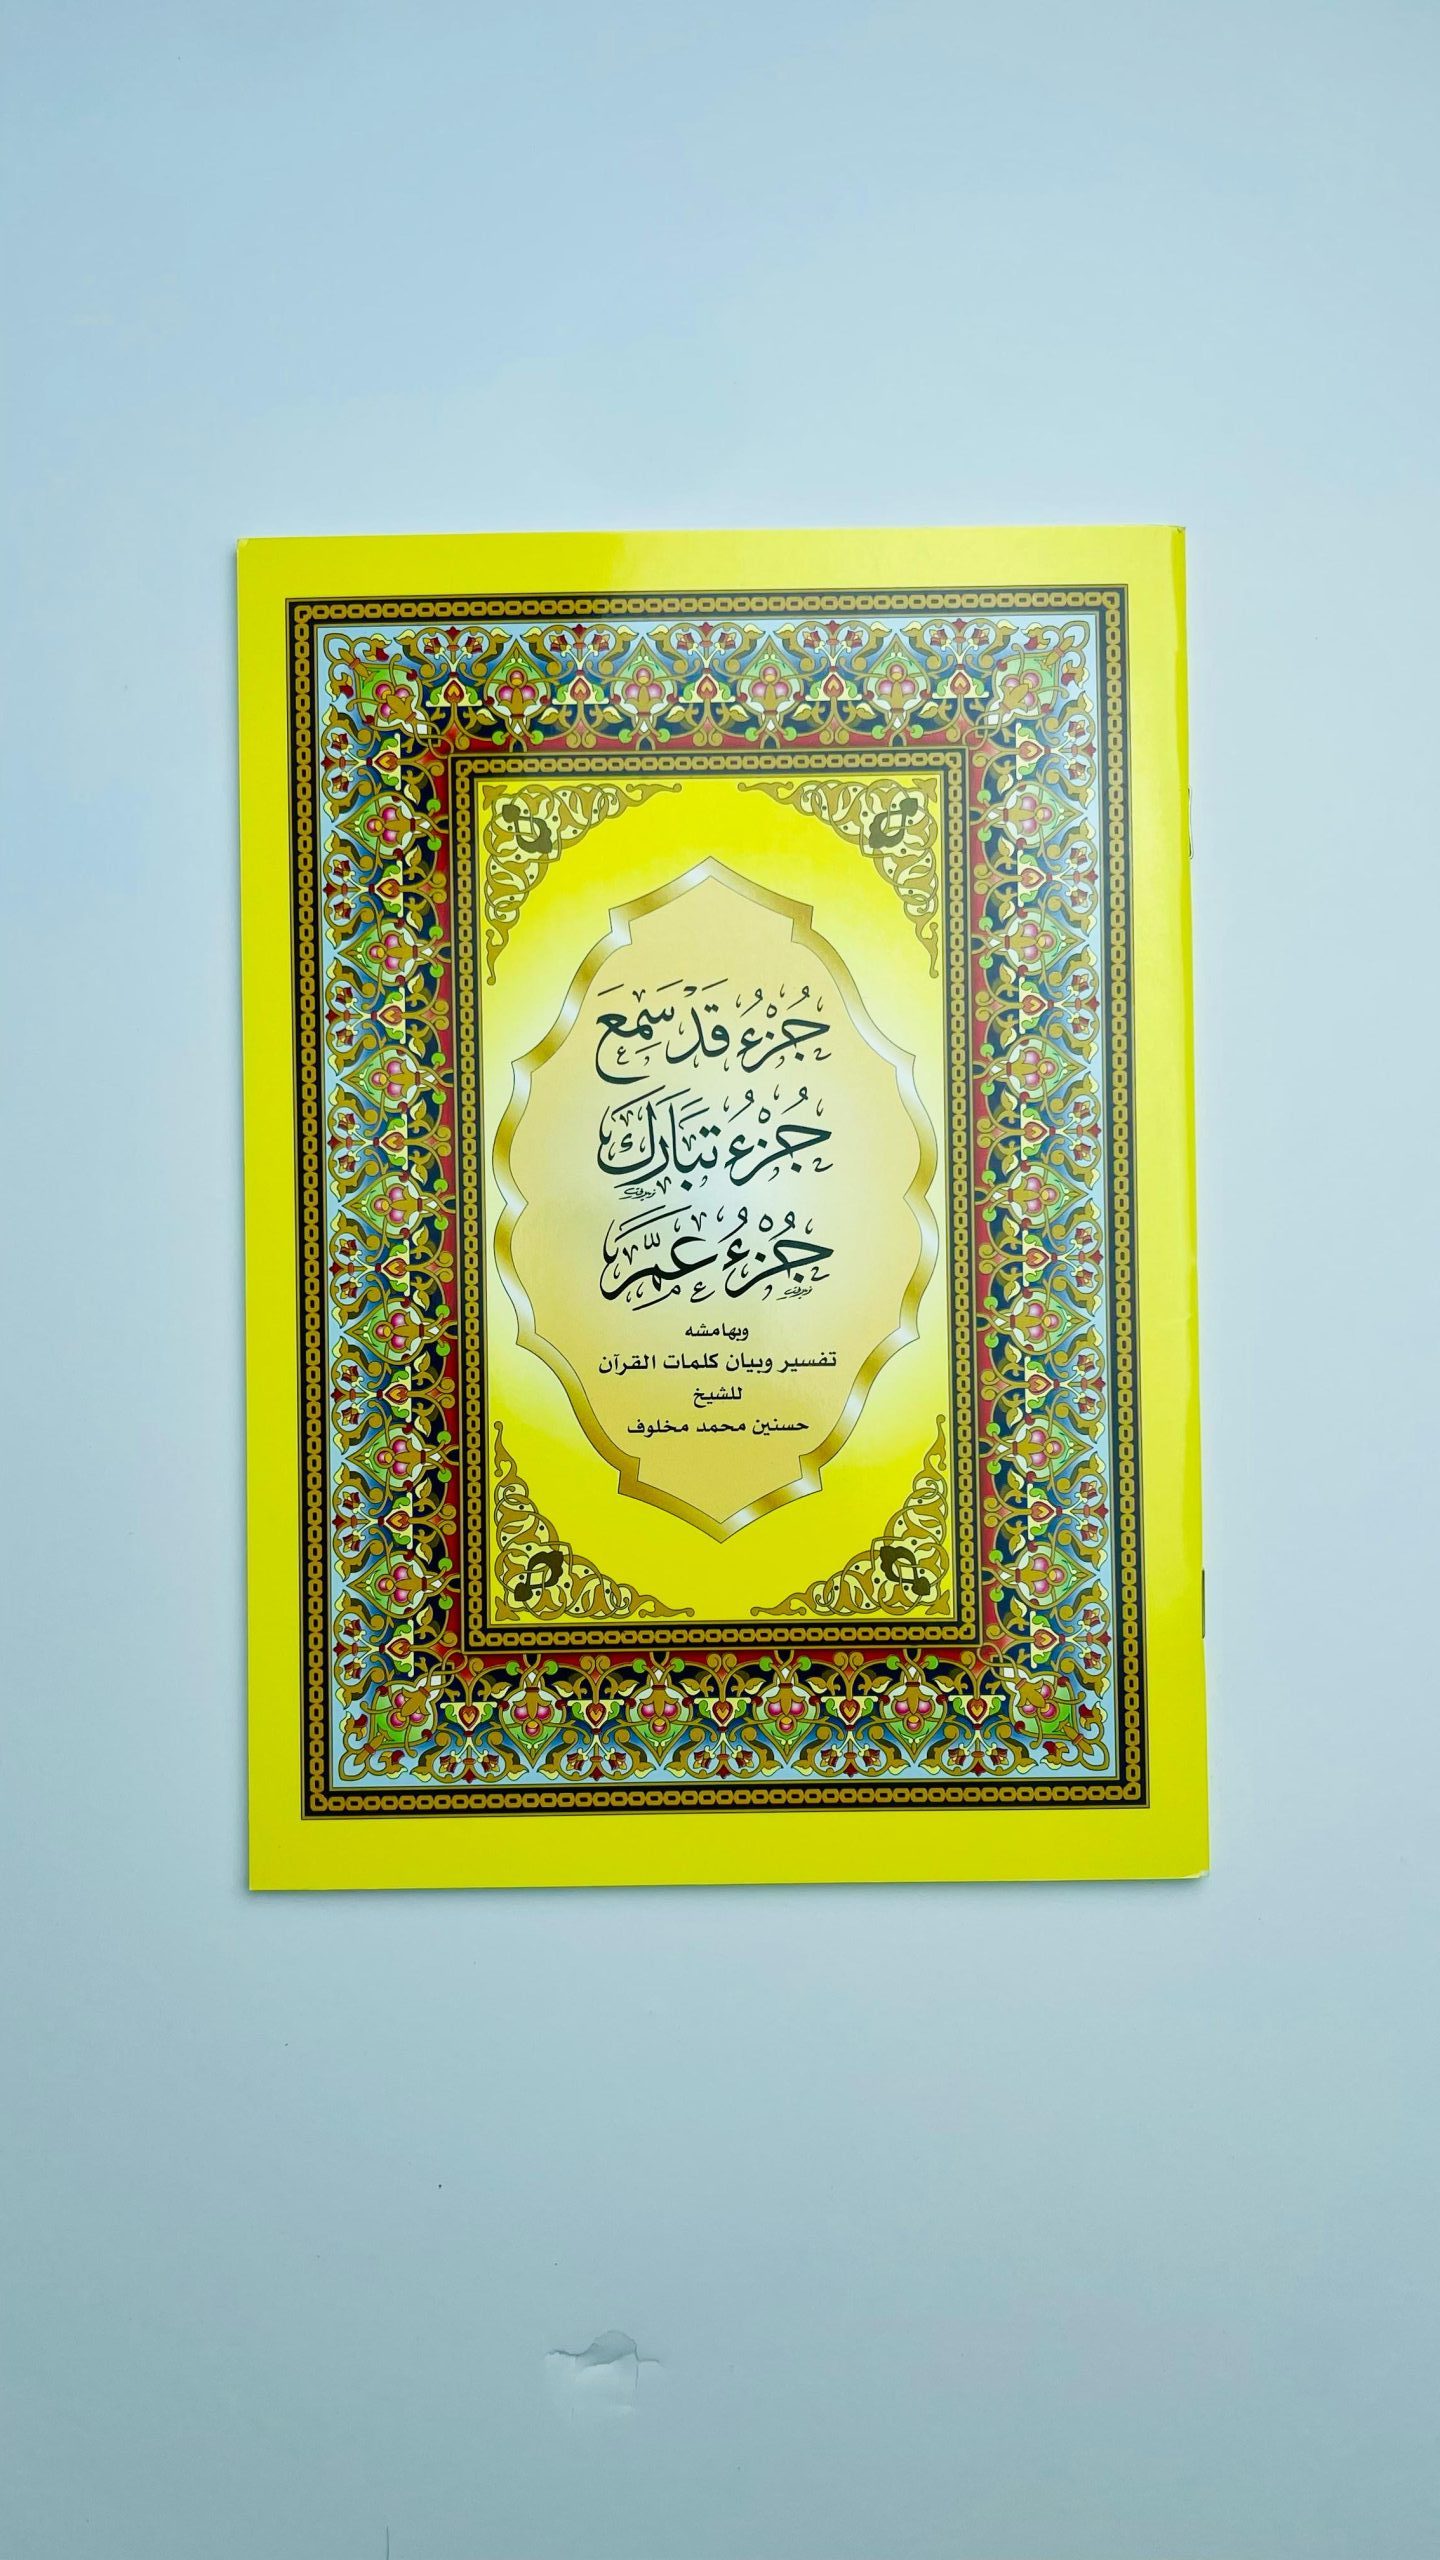 جُزْءُ قَدْ سَمِعَ
جُزْءُ تَبَارَكَ
جُزْءُ عَمَّ
وبهامشه
تفسير وبيان كلمات القرآن
للشيخ
حسنين محمد مخلوف